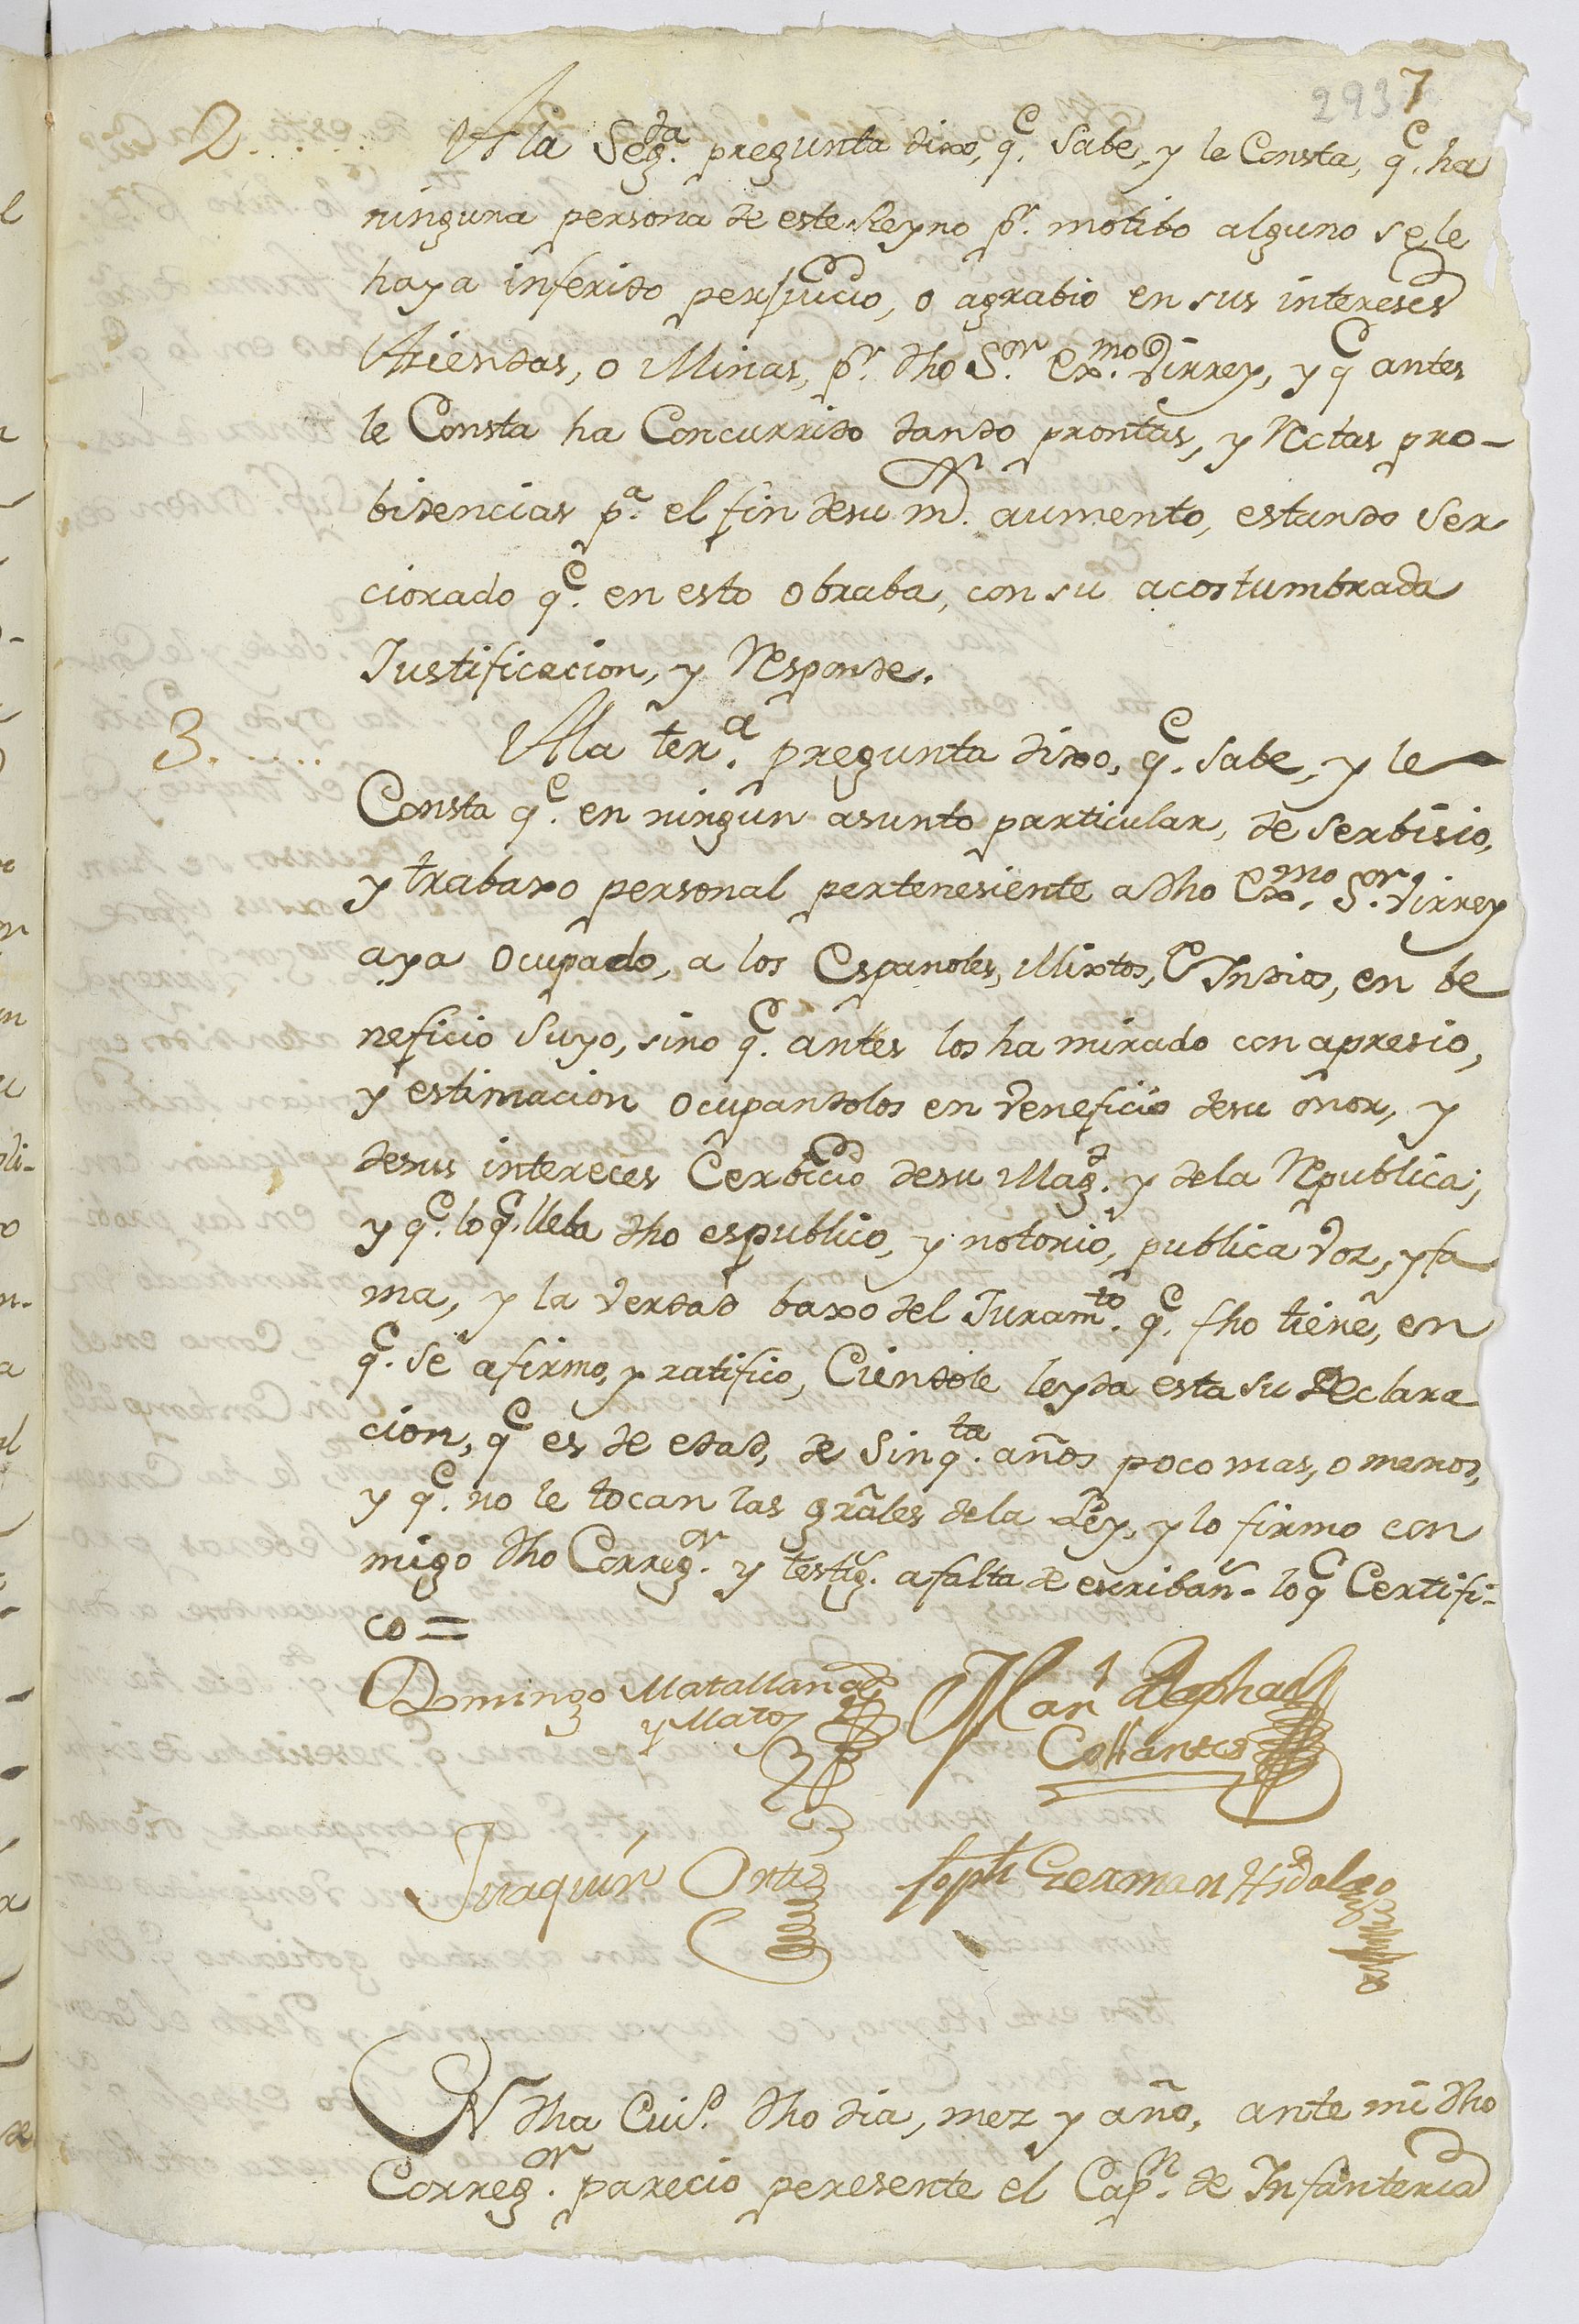 293 7
2...... Ala Seg.da pregunta dixo, q.e Sabe, y le Consta, q.e ha
ninguna persona de este Reyno p.r motibo alguno se le
haya inferido perjuicio, o agrabio en sus intereses
Asiendas, o Minas, p.r dho S.or Ex.mo Virrey, y q.e antes
le Consta ha Concurrido dando prontas, y Rectas pro-
bidencias p.a el fin desu m.or aumento, estando Ser
ciorado q.e en esto obraba, con su acostumbrada
Justificacion, y Responde.
3...... Ala ter.a pregunta dixo, q.e Sabe, y le
Consta q.e en ningun asunto particular, de serbisio,
y trabaxo personal pertenesiente a dho Ex.mo S.or Virrey
aya ocupado, a los Españoles, Mixtos, e Indios, en be
neficio Suyo, sino q.e antes los ha mirado con apresio,
y estimacion ocupandolos en Veneficio desu onor, y
desus intereces Cerbicio desu Mag.d y dela Republica;
y q.e lo q.e lleba dho es publico, y notorio, publica Voz, y fa
ma, y la Verdad baxo del Juram.to q.e fho tiene, en
q.e se afirmo, y ratifico, Ciendole leyda esta su Declara
cion, q.e es de edad, de Sinq.ta años poco mas, o menos,
y q.e no le tocan las grãles dela Ley, y lo firmo con
migo dho Correg.or y testig.s a falta de escribañ. lo q.e Certifi-
co =
Domingo Matallana
y Mato Man.l Raphael
Collantes
Juaquin Ortiz Joph German Hidalgo
EN dha Ciu.d dho dia, mez y año, ante mi dho
Correg.or parecio peresente el Cap.n de Infanteria